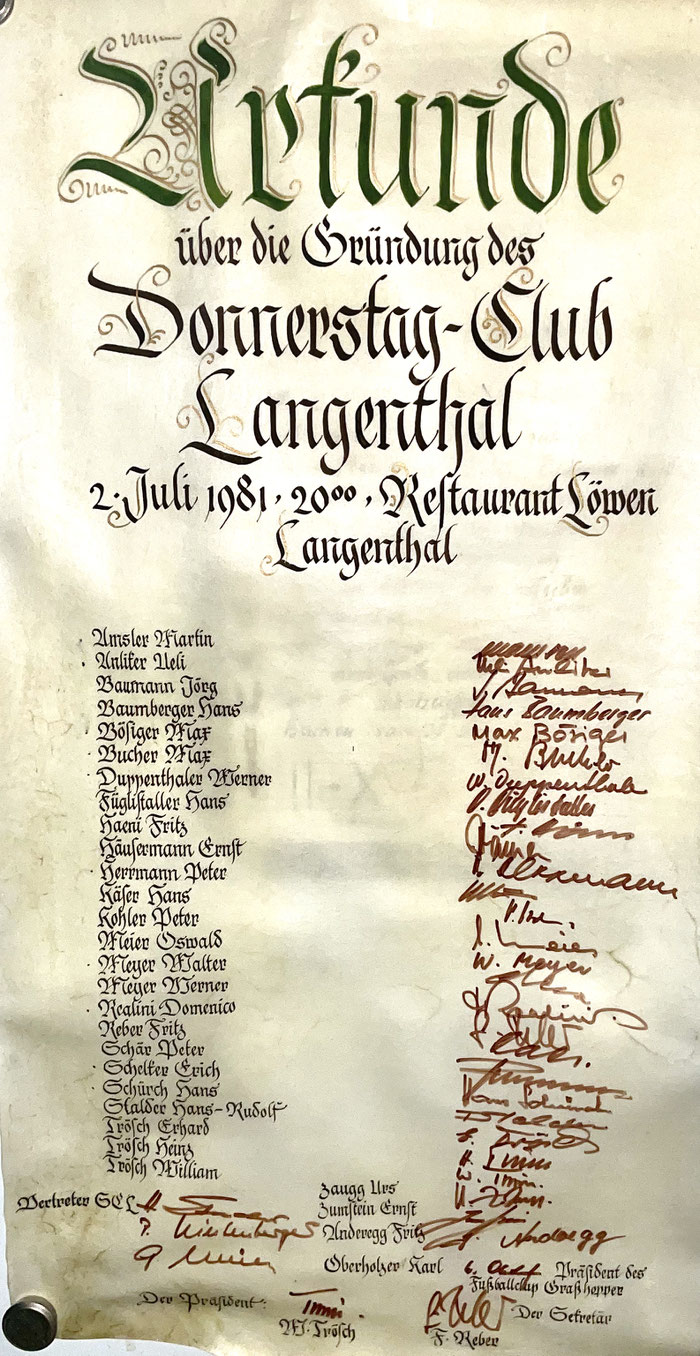 Urkunde
über die Gründung des
Donnerstag-Club
Langenthal
2. Juli 1981, 20⁰⁰, Restaurant Löwen
Langenthal
Amsler Martin
Anliker Ueli Ueli Anliker
Baumann Jörg J. Baumann
Baumberger Hans Hans Baumberger
Bösiger Max Max Bösiger
Bucher Max M. Bucher
Duppenthaler Werner W. Duppenthaler
Füglistaller Hans H. Füglistaller
Haeni Fritz
Häusermann Ernst
Herrmann Peter P. Herrmann
Käser Hans
Kohler Peter
Meier Oswald O. Meier
Meyer Walter W. Meyer
Meyer Werner
Realini Domenico D. Realini
Reber Fritz
Schär Peter
Schelker Erich
Schürch Hans Hans Schürch
Stalder Hans-Rudolf
Trösch Erhard E. Trösch
Trösch Heinz
Trösch William
Zaugg Urs
Vertreter SCL Zumstein Ernst
Anderegg Fritz F. Anderegg
Oberholzer Karl Präsident des
Fußballclup Graßhopper
Der Präsident: Der Sekretär
W. Trösch F. Reber